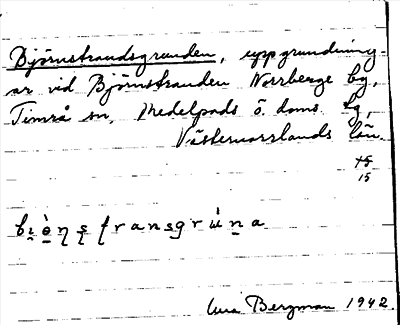 Björnstrandsgrunden, uppgrundning-
ar vid Björnstranden Norrberge by,
Timrå sn, Medelpads ö. doms. hg,
Västernorrlands län.
15
15
Bergman 1942.